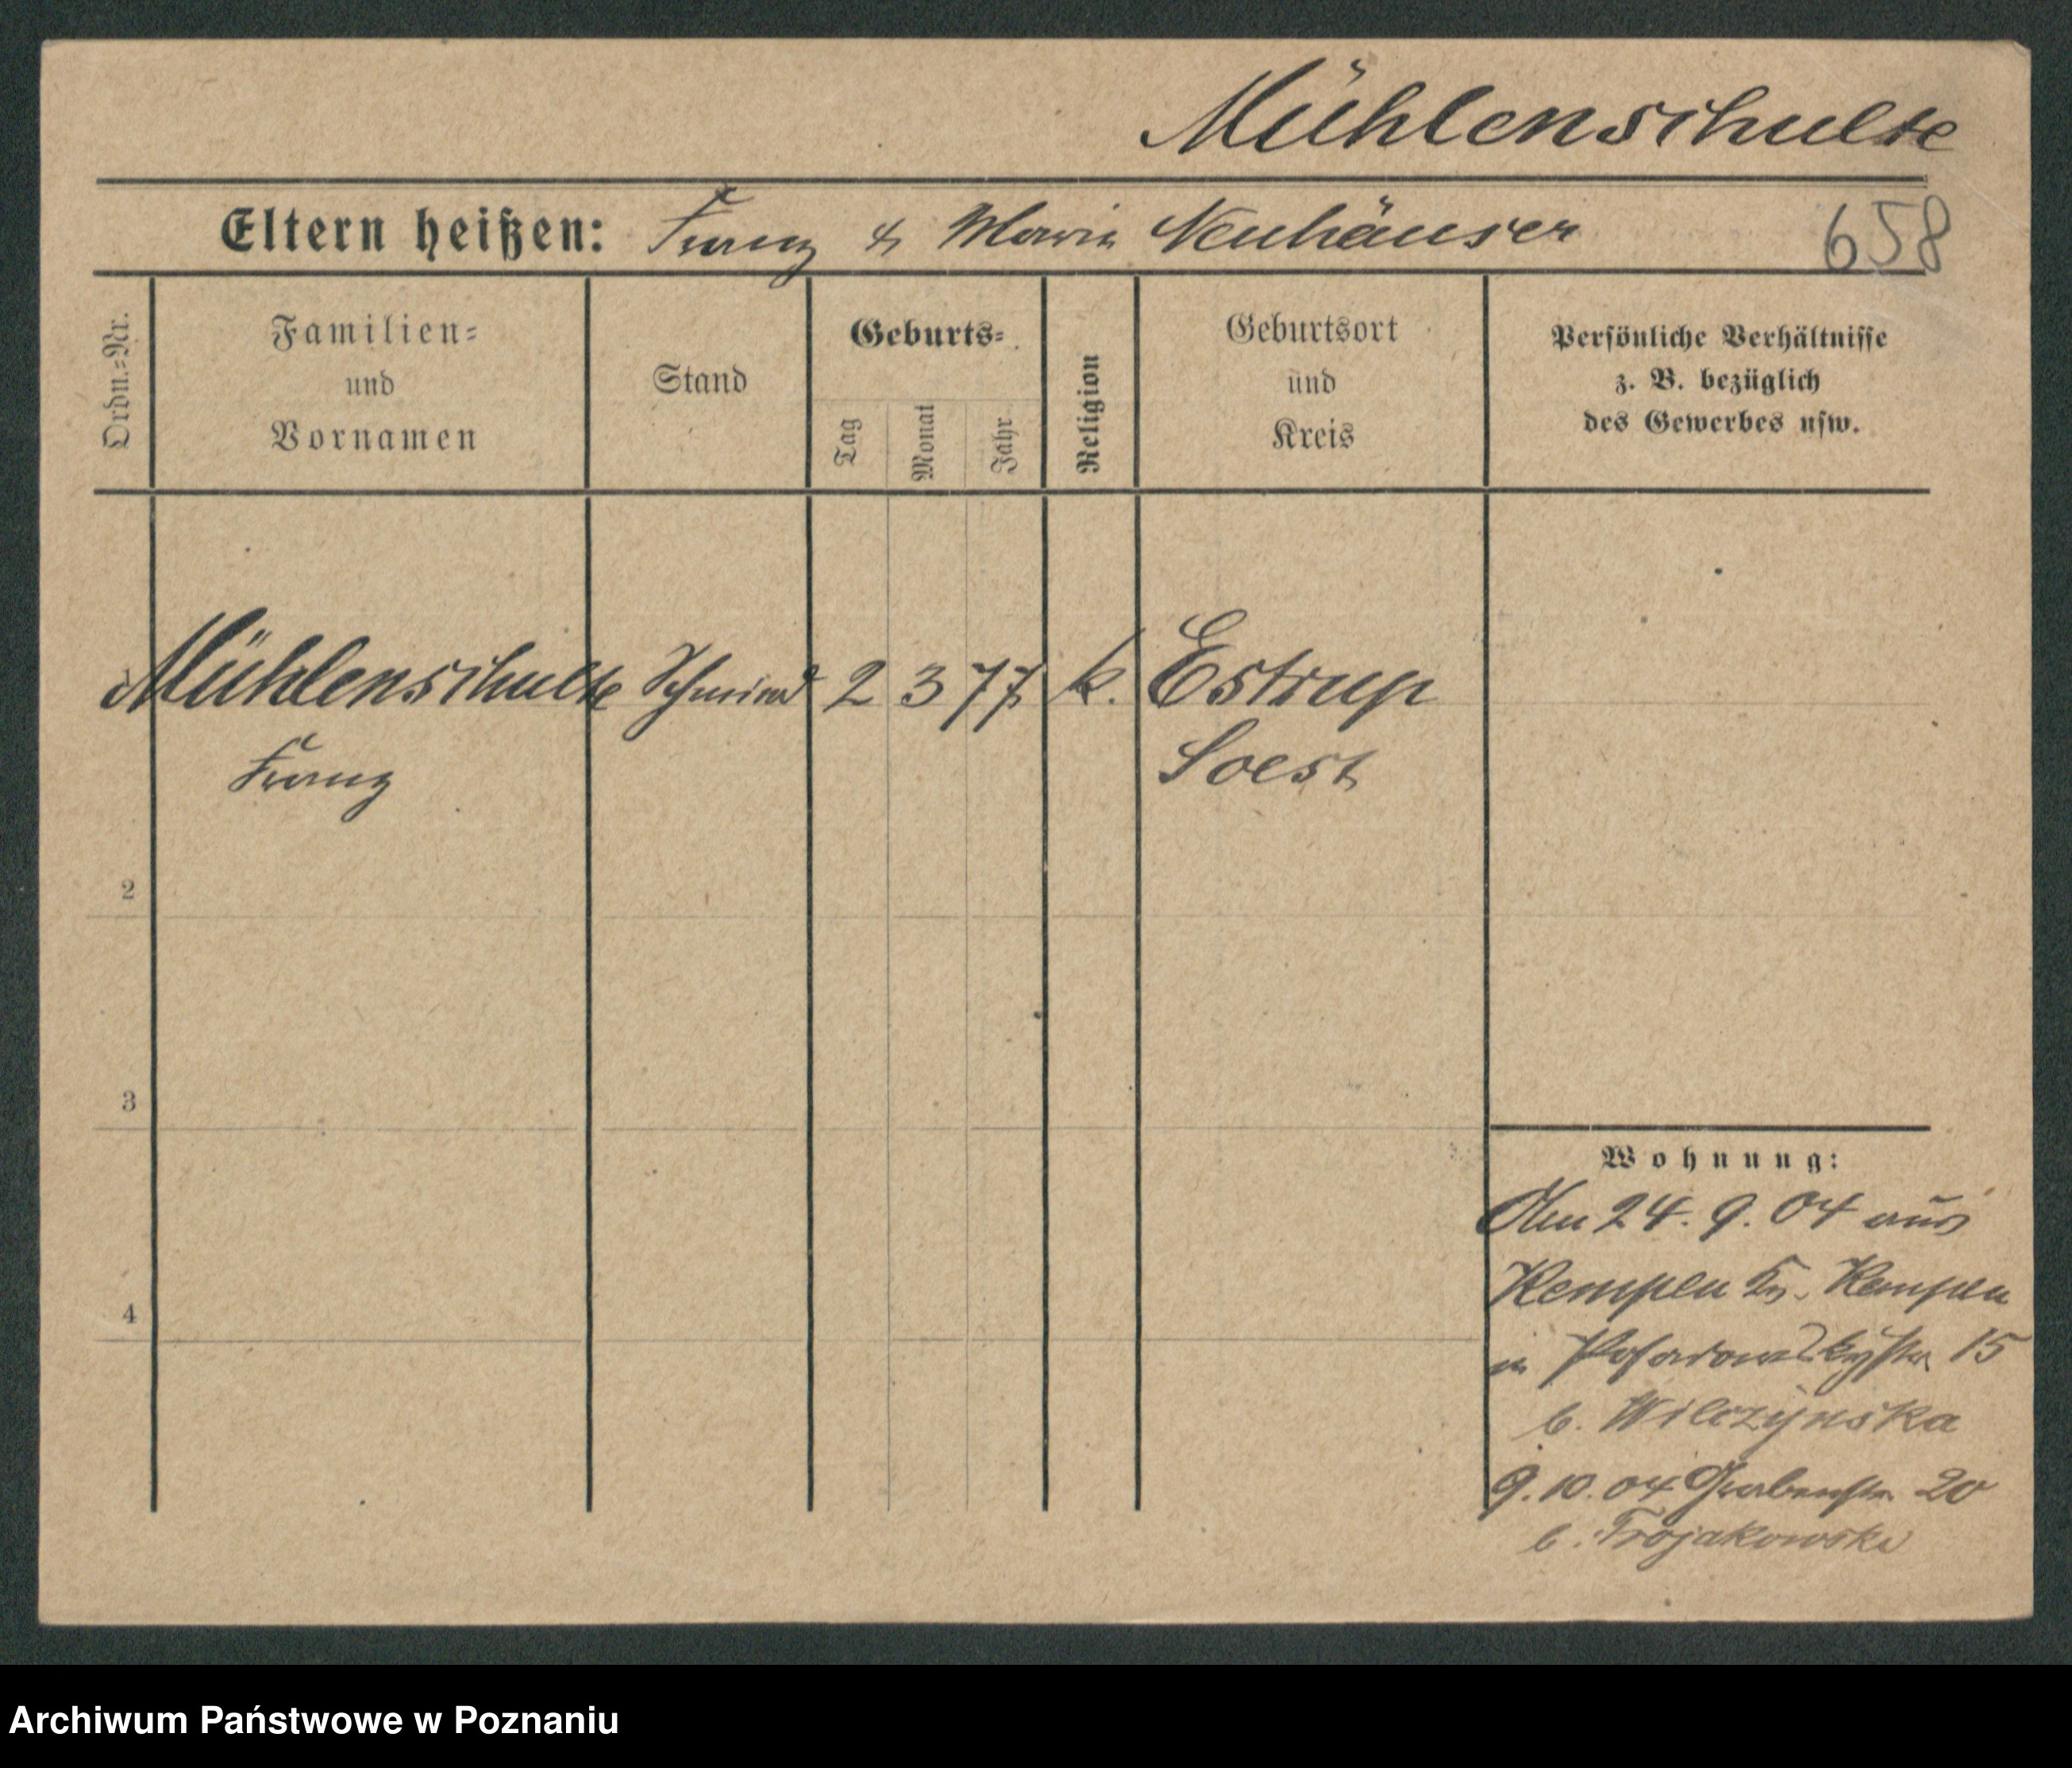 Mühlenschulte
Eltern heißen: Franz & Maria Neuhäuser 658
Ordn.=Nr.
Familien=
und
Vornamen
Stand
Geburts=
Tag
Monat
Jahr
Religion
Geburtsort
und
Kreis
Persönliche Verhältnisse
z. B. bezüglich
des Gewerbes usw.
Mühlenschulte Schmied 2 3 77 k. Estrup
Franz Soest
2
3
4
Wohnung:
Am 24. 9. 04 aus
Kempen Kr. Kempen
in Posadowskystr 15
b. Wilczynska
9. 10. 04 Grabenstr 20
b. Trojakowski
Archiwum Państwowe w Poznaniu